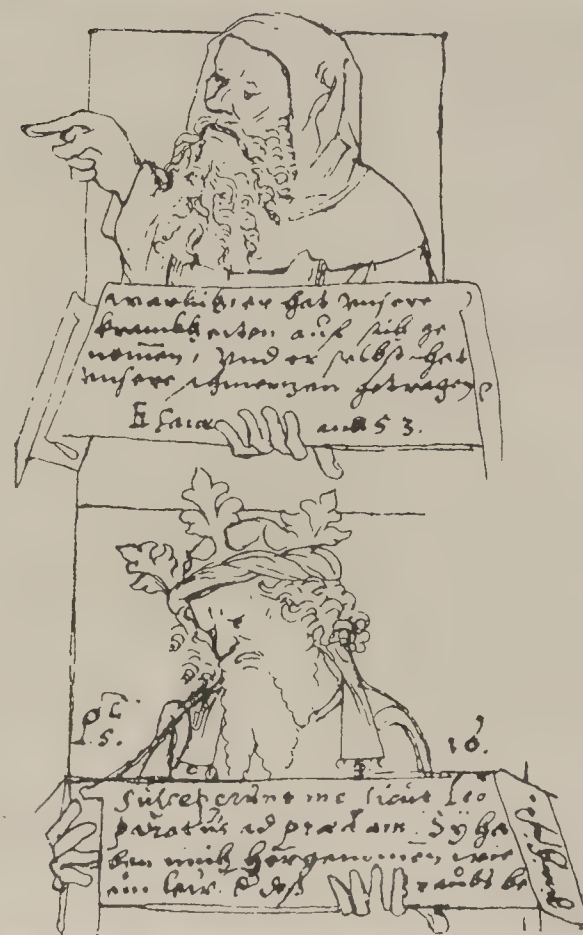 warlich er hat Vnsere
krankheiten auf sich ge
nomen, Vnd er selbst hat
Vnsere schmerzen getragen
Esaia am 53.
ps.
16.
Susceperunt me sicut leo
paratus ad praedam. Sÿ ha
ben mich hergenomen wie
ein lew. d des raubs be